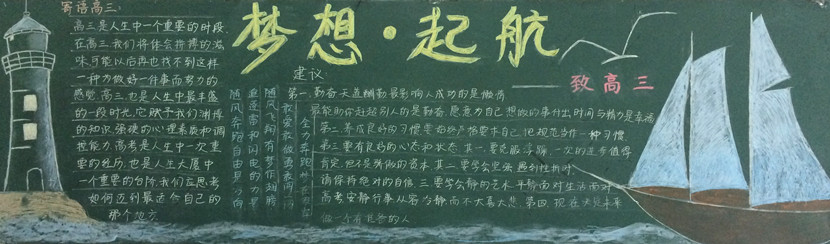 寄语高三:
高三是人生中一个重要的时段.
在高三我们将体会拼搏的滋
味.可能以后再也找不到这样
一种为做好一件事而努力的
感觉.高三也是人生中最丰盛
的一段时光,它赋予我们渊博
的知识,强健的心理素质和调
节能力.高考是人生中一次重
要的经历,也是人生大厦中
一个重要的台阶.我们应思考
如何迈到最适合自己的
那个地方.
梦想·起航
——致高三
建议:
第一.勤奋.天道酬勤.最影响人成功的是懒惰
最能助你超越别人的是勤奋.愿意为自己想做的事付出时间与精力是幸福
第二.养成良好的习惯.要始终严格要求自己.但规范当作一种习惯
第三.要有良好的心态和状态.其一.要克服浮躁.一次的进步值得
肯定.但不是骄傲的资本.其二.要学会坚强.遇到挫折时.
请保持绝对的自信.三.要学会静的艺术.平静面对生活面对
高考.安静行事.从容为静而不大喜大悲.第四.现在决定未来
做一个有思想的人
随风奔跑自由是方向
追逐雷和闪电的力量
随风飞翔有梦作翅膀
敢爱敢做勇敢闯一闯